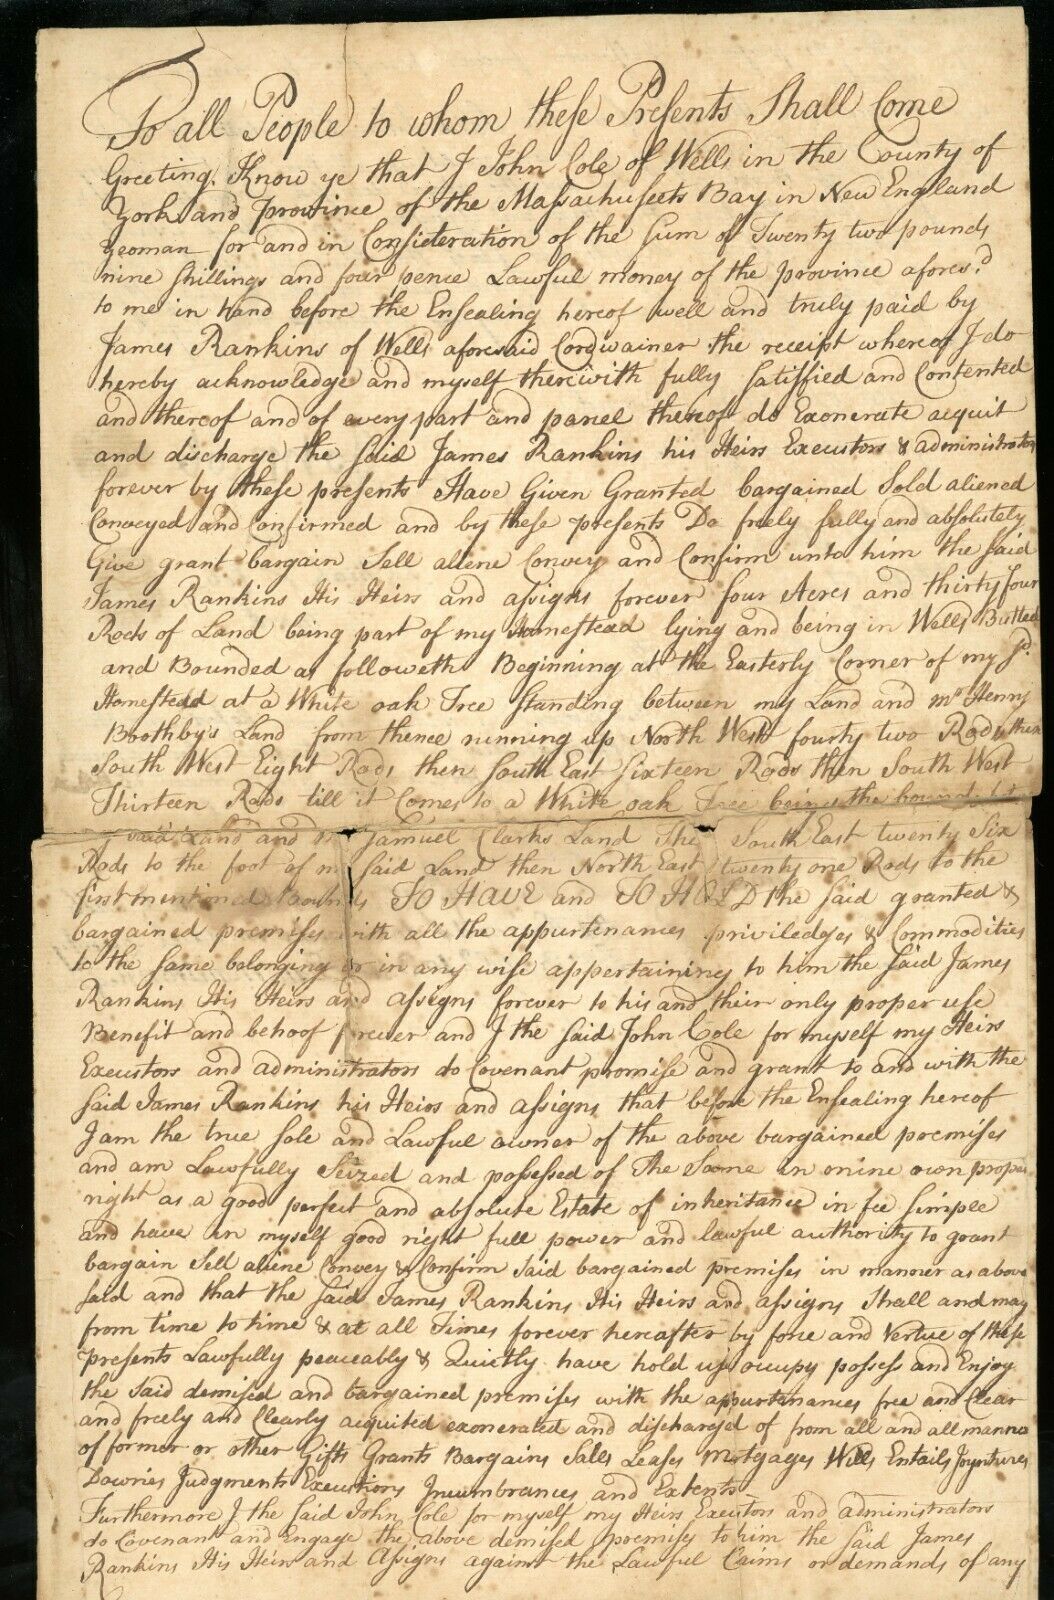 To all People to whom these Presents Shall Come
Greeting. Know ye that I John Cole of Wells in the County of
York and Province of the Massachusets Bay in New England
yeoman for and in Consideration of the Sum of Twenty two pounds
nine shillings and four pence Lawful money of the province afores.d
to me in hand before the Ensealing hereof well and truly paid by
James Rankins of Wells aforesaid Cordwainer the receipt whereof I do
hereby acknowledge and myself therewith fully Satisfied and Contented
and thereof and of every part and parcel thereof do Exonerate acquit
and discharge the Said James Rankins his Heirs Executors & administrators
forever by these presents Have Given Granted bargained Sold aliened
Conveyed and Confirmed and by these presents Do freely fully and absolutely
Give grant bargain Sell aliene Convey and Confirm unto him the Said
James Rankins His Heirs and assigns forever four Acres and thirty four
Rods of Land being part of my Homestead lying and being in Wells Butted
and Bounded as followeth Beginning at the Easterly Corner of my Sd.
Homestead at a White oak Tree Standing between my Land and mr Henry
Boothby's Land from thence running up North West fourty two Rods then
South West Eight Rods then South East Sixteen Rods then South West
Thirteen Rods till it Comes to a White oak Tree being the bounds
said Land and Samuel Clarks Land South East twenty Six
Rods to the foot of my Said Land then North East twenty one Rods to the
first mentioned Bounds TO HAVE and TO HOLD the Said granted &
bargained premises with all the appurtenances priviledges & Commodities
to the Same belonging or in any wise appertaining to him the Said James
Rankins His Heirs and assigns forever to his and their only proper use
Benefit and behoof forever and I the Said John Cole for myself my Heirs
Executors and administrators do Covenant promise and grant to and with the
Said James Rankins his Heirs and assigns that before the Ensealing hereof
I am the true Sole and Lawful owner of the above bargained premises
and am Lawfully Seized and possessed of the Same in mine own proper
right as a good perfect and absolute Estate of inheritance in fee Simple
and have in myself good right full power and lawful authority to grant
bargain Sell aliene Convey & Confirm Said bargained premises in manner as above
Said and that the Said James Rankins His Heirs and assigns Shall and may
from time to time & at all Times forever hereafter by force and Vertue of these
presents Lawfully peaceably & Quietly have hold use occupy possess and Enjoy
the Said demised and bargained premises with the appurtenances free and Clear
and freely and Clearly acquited exonerated and discharged of from all and all manner
of former or other Gifts Grants Bargains Sells Leases mortgages Wills Entails Joyntures
Dowries Judgments Executions Incumbrances and Extents
Furthermore I the Said John Cole for myself my Heirs Executors and administrators
do Covenant and Engage the above demised premises to him the Said James
Rankins His Heirs and Assigns against the Lawful Claims or demands of any